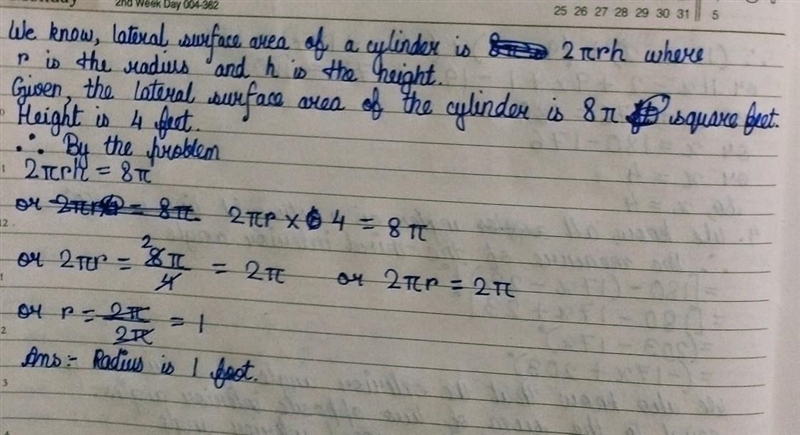 2nd Week Day 004-362
25 26 27 28 29 30 31 5
We know, lateral surface area of a cylinder is 2πrh where
r is the radius and h is the height.
Given, the lateral surface area of the cylinder is 8π square feet.
Height is 4 feet.
∴ By the problem
2πrh = 8π
or 2πr × 4 = 8π
or 2πr = 8π/4 = 2π or 2πr = 2π
or r = 2π/2π = 1
Ans:- Radius is 1 foot.